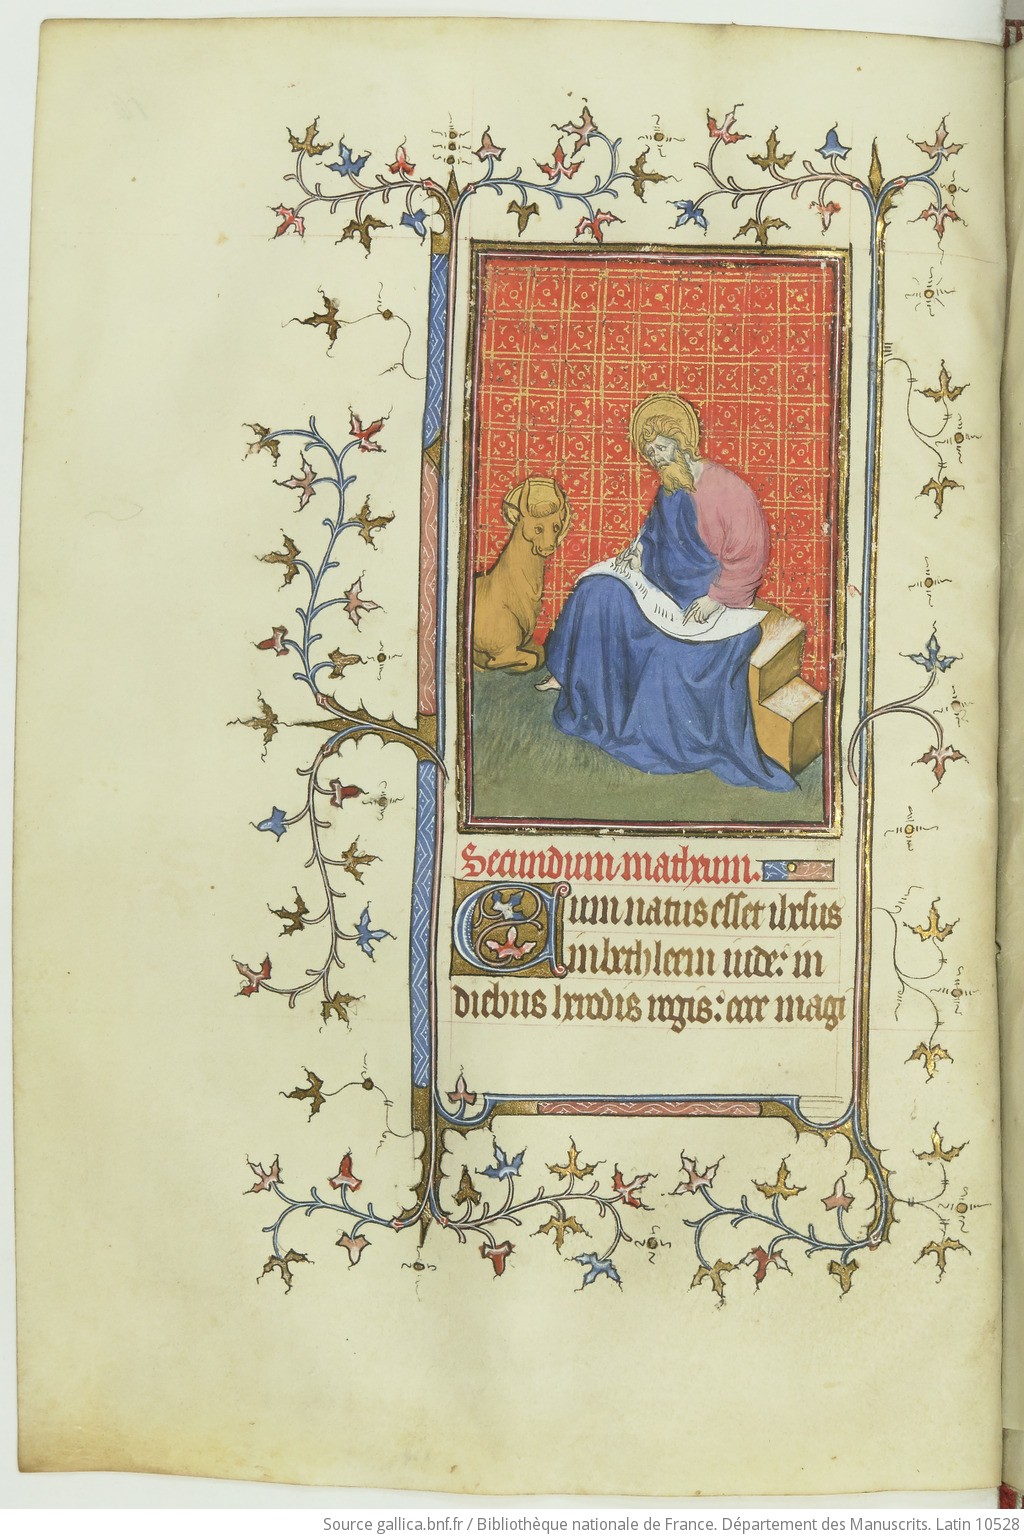 Secundum matheum.
Cum natus esset ihesus
in bethleem iude: in
diebus herodis regis: ecce magi
Source gallica.bnf.fr / Bibliothèque nationale de France. Département des Manuscrits. Latin 10528